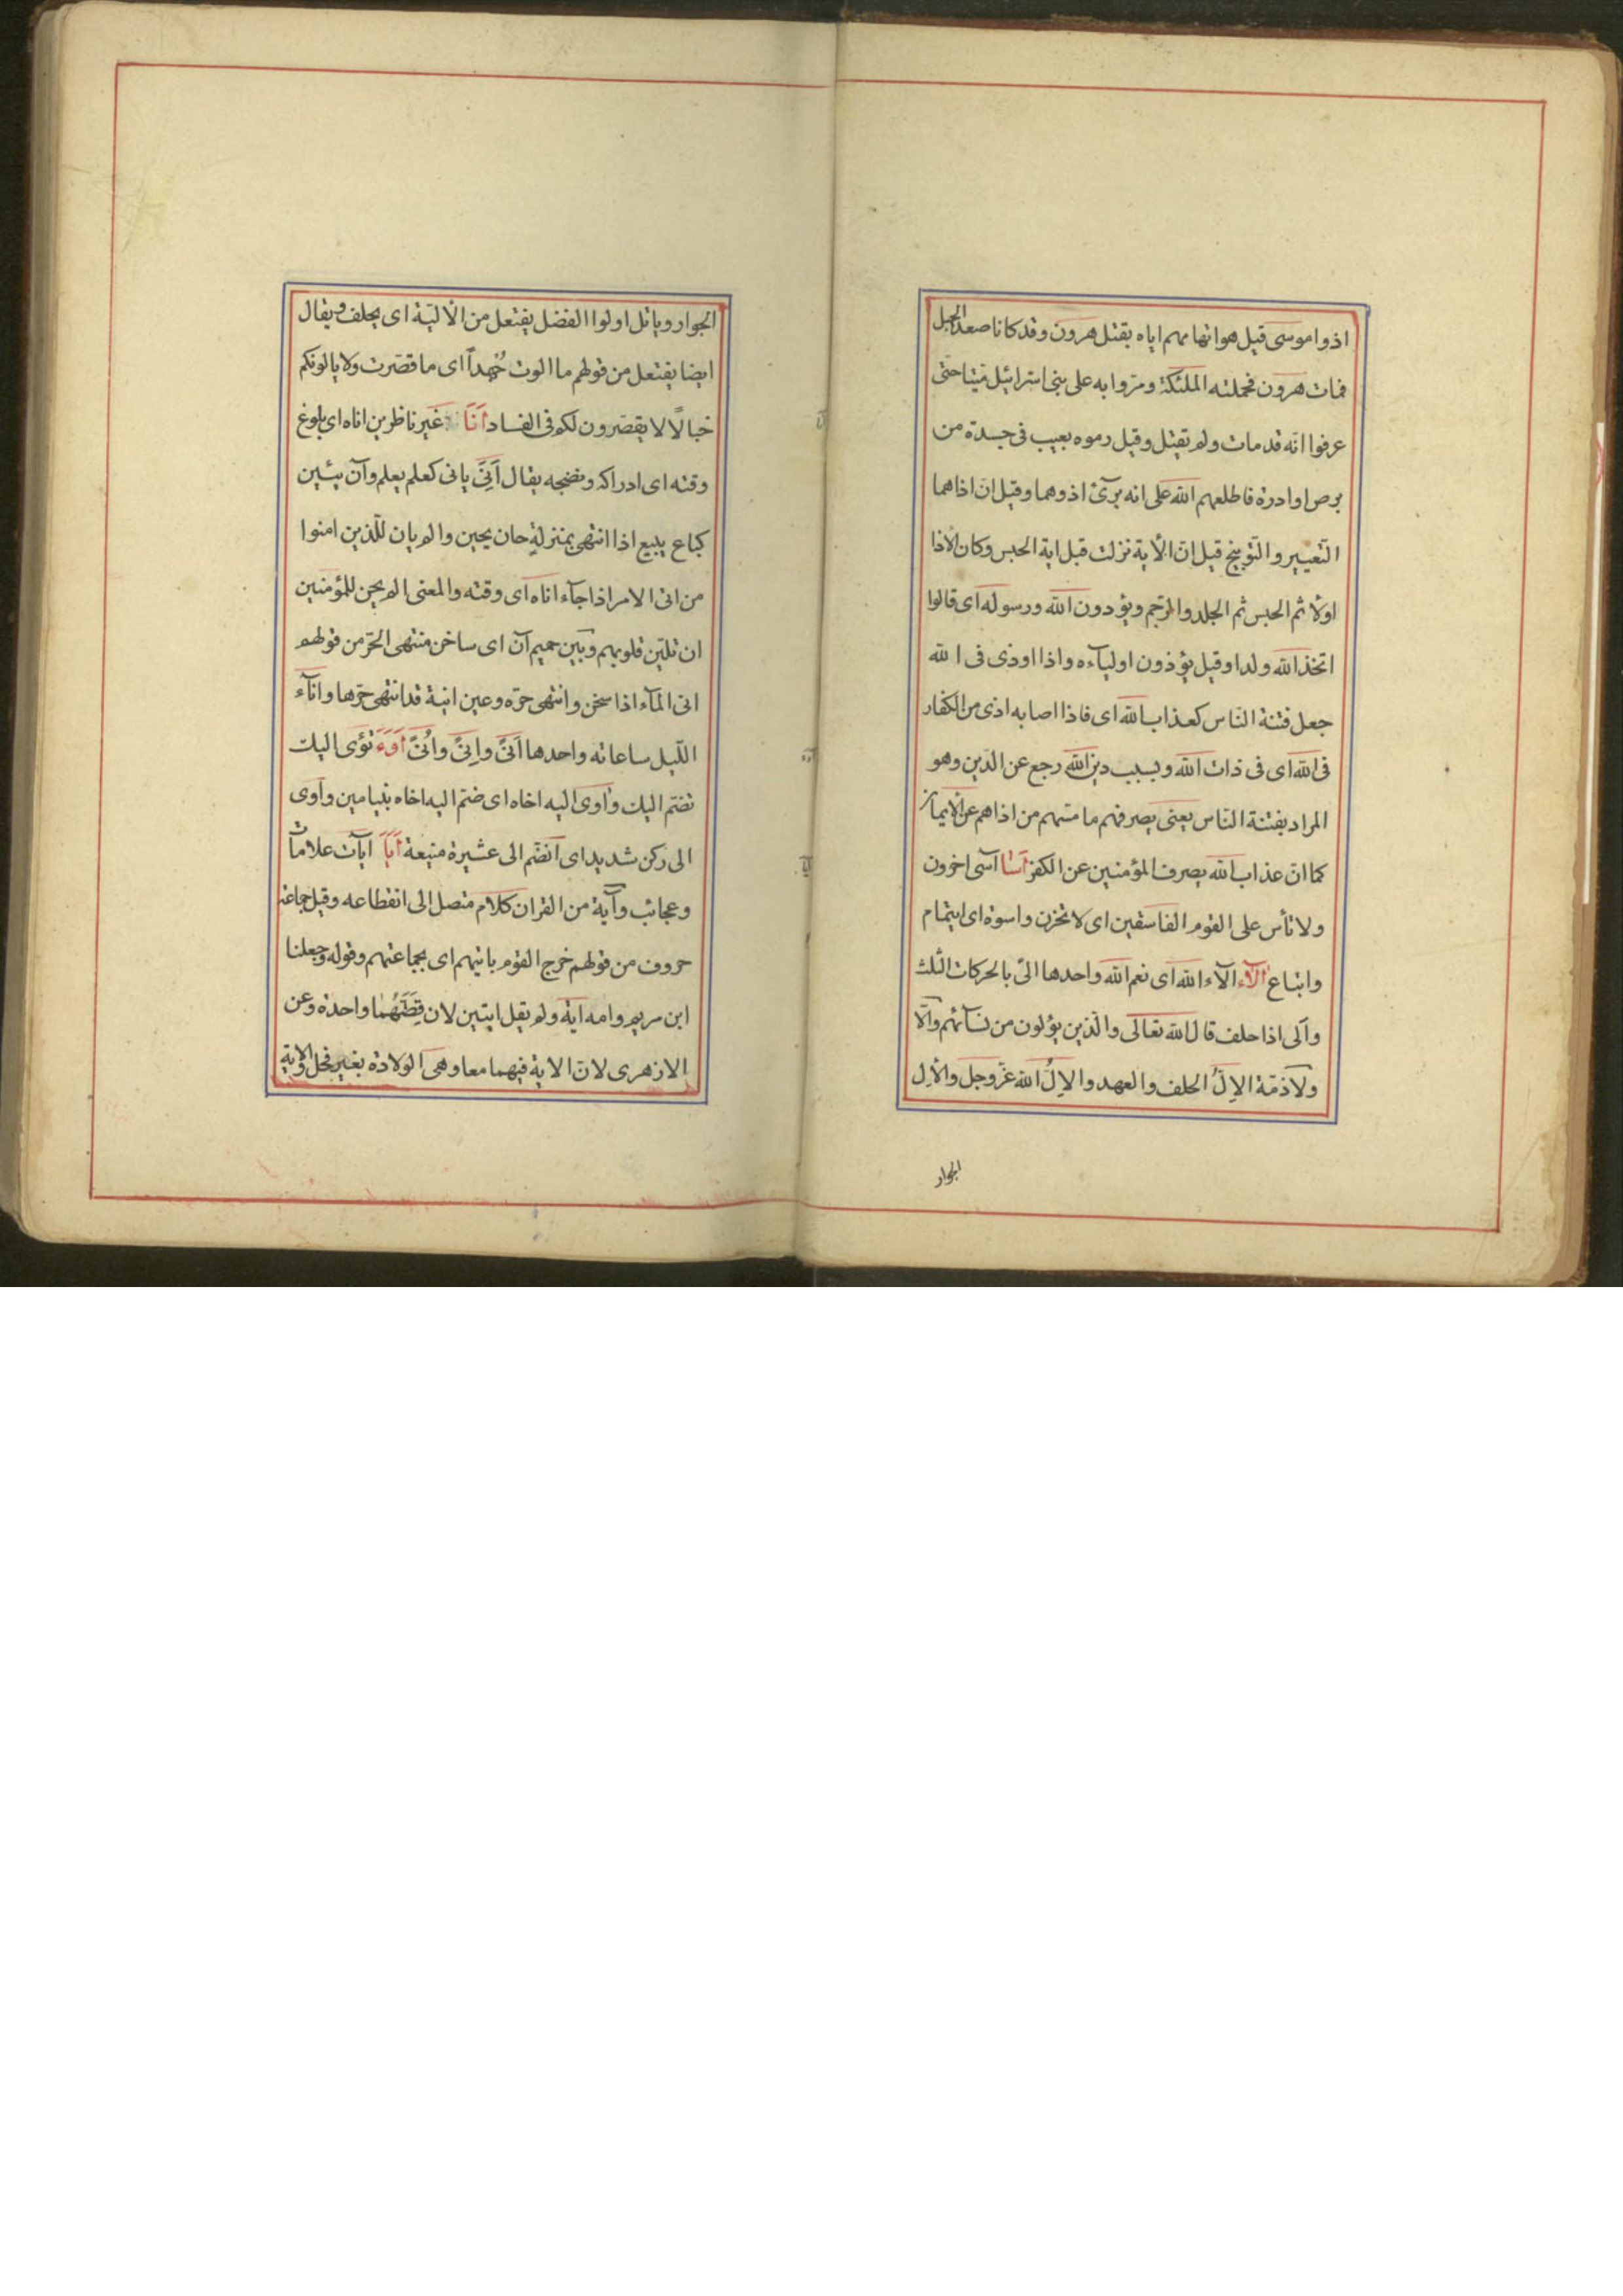 اذوا موسى قيل هو اتهامهم اياه بقتل هرون وقد كانا صعدا الجبل
فمات هرون فحملته الملئكة ومروا به على بنى اسرائيل ميتا حتى
عرفوا انّه قد مات ولم يقتل وقيل رموه بعيب فى جسده من
برص او ادرة فاطلعهم الله على انه برئ اذوهما وقيل ان اذاهما
التّعيير والتّوبيخ قيل انّ الأية نزلت قبل اية الحبس وكان الأذا
اولا ثم الحبس ثم الجلد والرّجم ويؤدون الله ورسوله اى قالوا
اتخذ الله ولدا وقيل يؤذون اولياءه واذا اوذى فى الله
جعل فتنة النّاس كعذاب الله اى فاذا اصابه اذى من الكفار
فى الله اى فى ذات الله وبسبب دين الله رجع عن الدّين وهو
المراد بفتنة النّاس يعنى يصرفهم ما مسّهم من اذاهم عن الايمان
كما انّ عذاب الله يصرف المؤمنين عن الكفر اَسَا آسى اخرون
ولا تأس على القوم الفاسقين اى لا تحزن واسوة اى ايتمام
واتباع اَلآء الآء الله اى نعم الله واحدها الىّ بالحركات الثّلث
وآلى اذا حلف قال الله تعالى والّذين يؤلون من نسآئهم والّا
ولا ذمّة الاِلُّ الحلف والعهد والاِلُّ الله عزّ وجل والاِل
الجوار
الجوار ويأتل اولوا الفضل يفتعل من الأليّة اى يحلف ويقال
ايضا يفتعل من قولهم ما الوت جُهداً اى ما قصّرت ولا يالونكم
خبالًا لا يقصّرون لكم فى الفساد اَنَا غير ناظرين اناه اى بلوغ
وقته اى ادراكه ونضجه يقال اَنِىَ يانى كعلم يعلم وآن يئين
كباع يبيع اذا انتهى بمنزلة حان يحين والم يان للّذين امنوا
من انى الامر اذا جآء اناه اى وقته والمعنى الم يحن للمؤمنين
ان تليّن قلوبهم وبين حميم آن اى ساخن منتهى الحرّ من قولهم
انى المآء اذا سخن وانتهى حرّه وعين انية قد انتهى حرّها وانآء
اللّيل ساعاته واحدها اَنىً واِنىً واُنىً اَوَءَ تؤى اليك
تضّم اليك وآوى اليه اخاه اى ضمّ اليه اخاه بنيامين وآوى
الى ركن شديد اى انضّم الى عشيرة منيعة اَيَا آيات علامات
وعجائب وآية من القران كلام متصل الى انقطاعه وقيل جماعة
حروف من قولهم خرج القوم باتيهم اى بجماعتهم وقوله وجعلنا
ابن مريم وامه اية ولم يقل ايتين لان قِصَّتَهُما واحدة وعن
الازهرى لانّ الاية فيهما معا وهى الولادة بغير فحل والاية